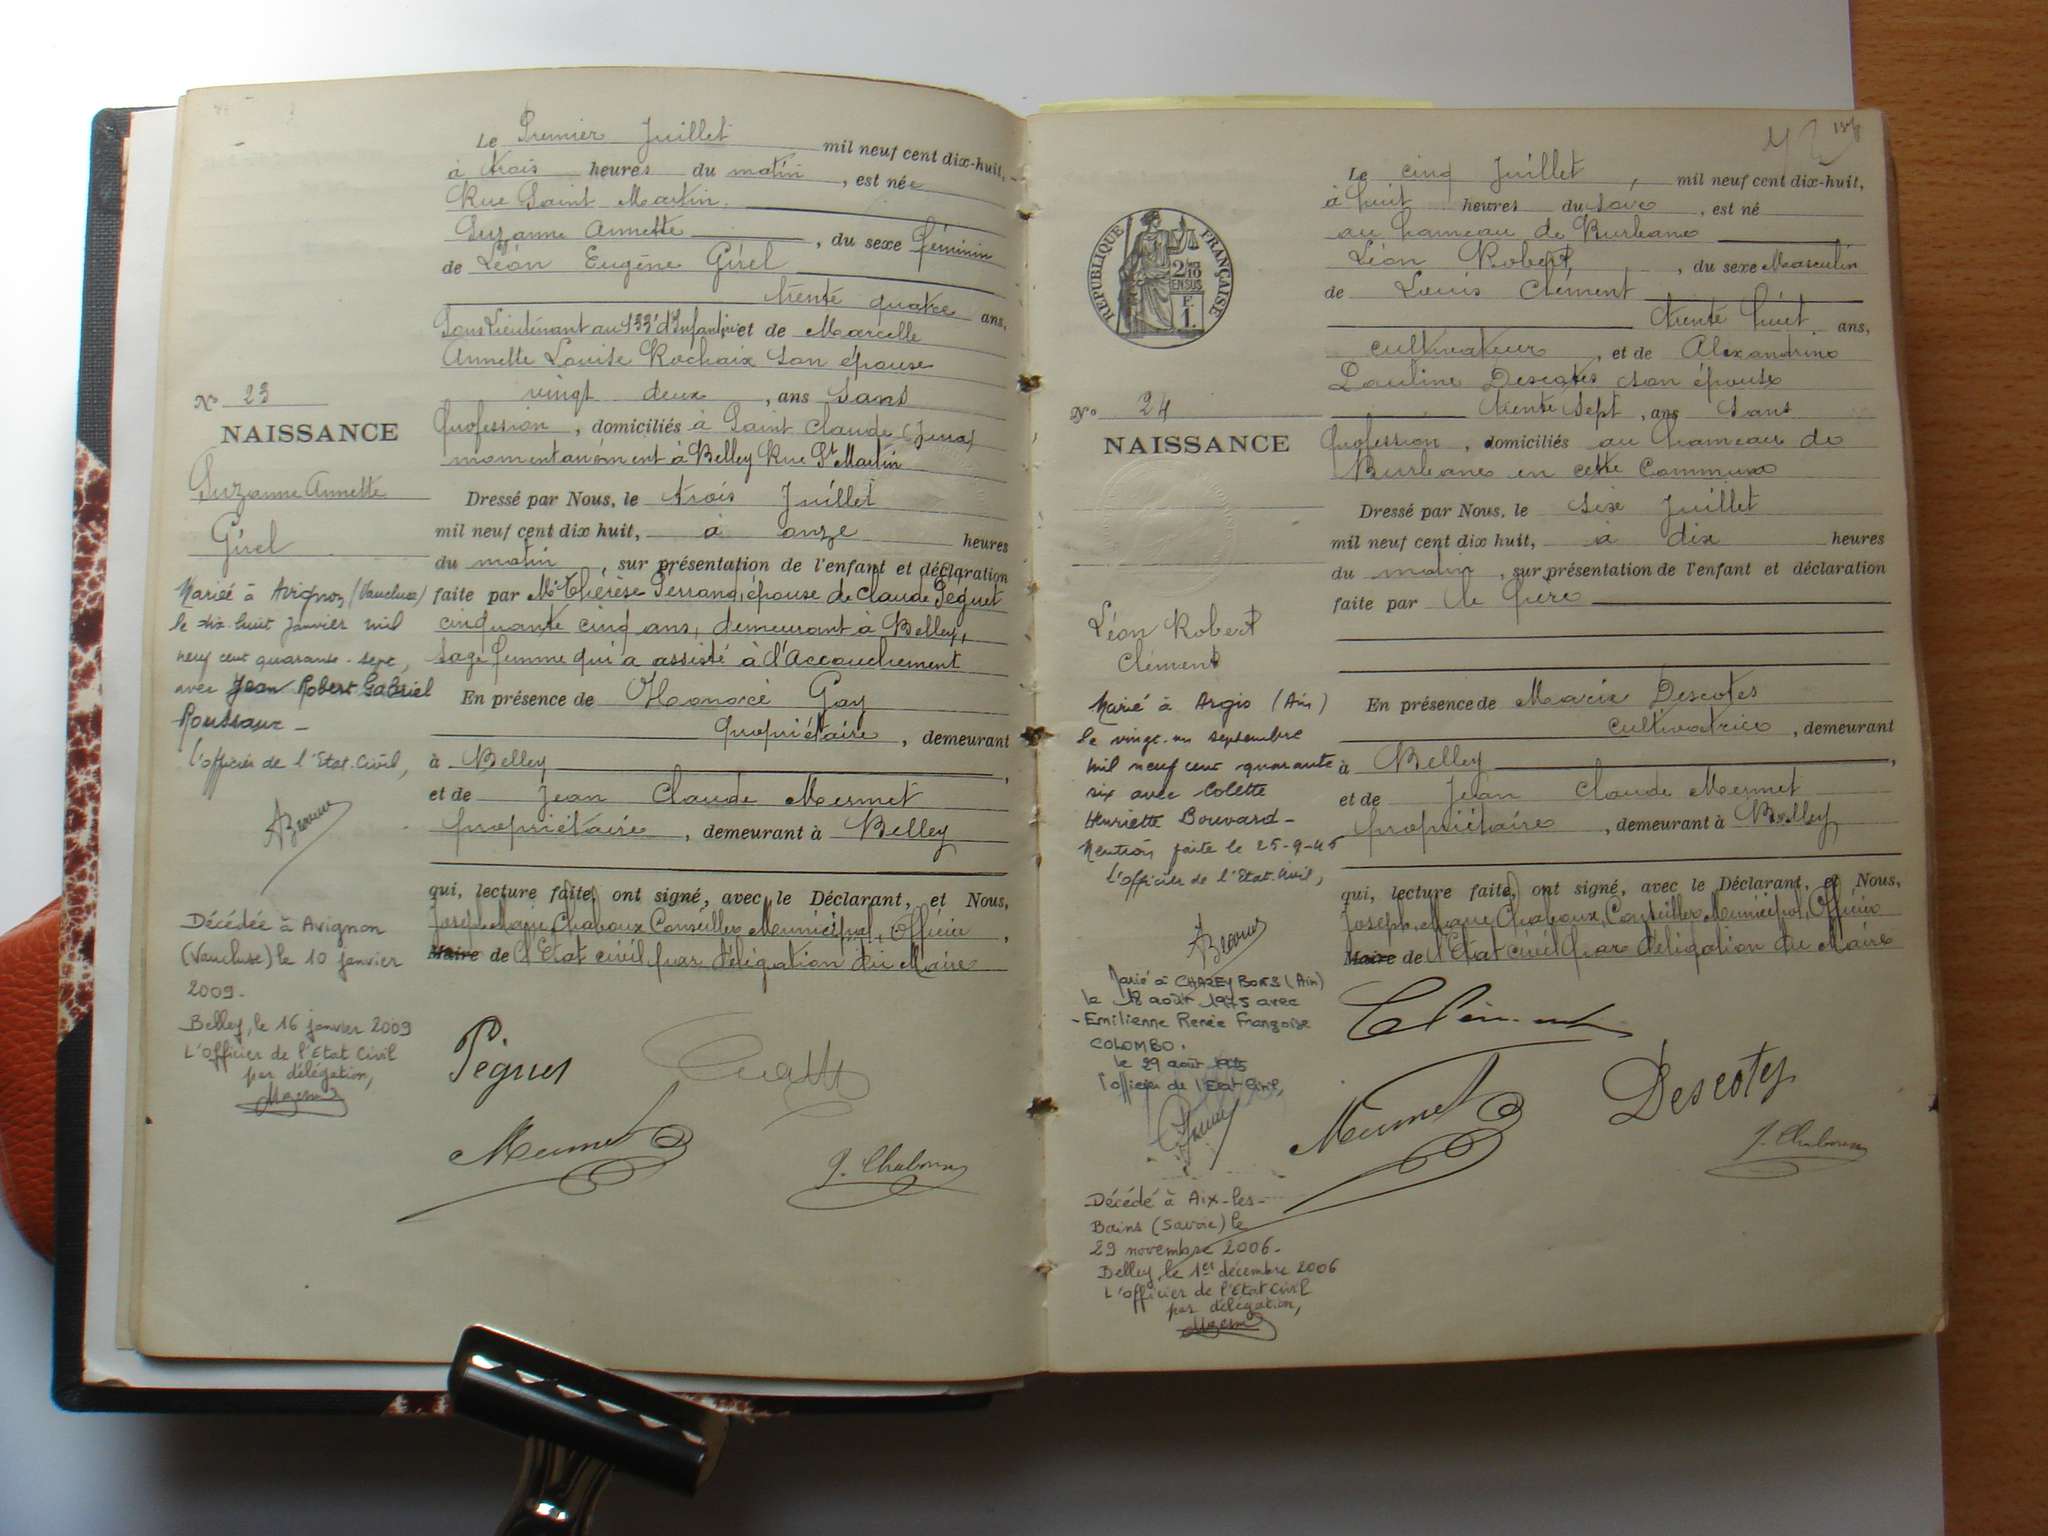 Le Premier Juillet mil neuf cent dix-huit,
à trois heures du matin, est née
Rue Saint Martin
Suzanne Annette, du sexe féminin
de Léon Eugène Girel
trente quatre ans,
Sous Lieutenant au 133e d'Infantrie et de Marcelle
Annette Louise Rochaix son épouse
vingt deux, ans sans
profession, domiciliés à Saint Claude (Jura)
momentanément à Belley Rue St Martin
Dressé par Nous, le trois Juillet
mil neuf cent dix huit, à onze heures
du matin, sur présentation de l'enfant et déclaration
faite par Mie Thérèse Perrand, épouse de Claude Péguet
cinquante cinq ans, demeurant à Belley,
sage femme qui a assisté à l'Accouchement
En présence de Honoré Gay
propriétaire, demeurant
à Belley,
et de Jean Claude Mermet
propriétaire, demeurant à Belley
qui, lecture faite, ont signé, avec le Déclarant, et Nous,
Joseph Marie Chaboux Conseiller Municipal, Officier,
Maire de l'Etat civil par délégation du Maire
Péguet
Mermet
J. Chaboux
No 23
NAISSANCE
Suzanne Annette
Girel
Mariée à Avignon (Vaucluse)
le dix-huit janvier mil
neuf cent quarante-sept,
avec Jean Robert Gabriel
Roussaux -
l'officier de l'Etat-Civil,
Décédée à Avignon
(Vaucluse) le 10 janvier
2009-
Belley, le 16 janvier 2009
L'Officier de l'Etat Civil
par délégation,
158
Le cinq Juillet, mil neuf cent dix-huit,
à huit heures du soir, est né
au hameau de Burbanc
Léon Robert, du sexe Masculin
de Louis Clément
trente huit ans,
cultivateur, et de Alexandrine
Pauline Descotes son épouse
trente sept, ans Sans
profession, domiciliés au hameau de
Burbanc en cette Commune
Dressé par Nous, le six Juillet
mil neuf cent dix huit, à dix heures
du matin, sur présentation de l'enfant et déclaration
faite par le père
En présence de Marie Descotes
cultivatrice, demeurant
à Belley,
et de Jean Claude Mermet
propriétaire, demeurant à Belley
qui, lecture faite, ont signé, avec le Déclarant, et Nous,
Joseph Marie Chaboux, Conseiller Municipal, Officier
Maire de l'Etat civil par délégation du Maire
Clément
Mermet
Descotes
J. Chaboux
RÉPUBLIQUE FRANÇAISE
2/10
EN SUS
F.
1.
No 24
NAISSANCE
Léon Robert
Clément
Marié à Argis (Ain)
le vingt-un septembre
mil neuf cent quarante
six avec Colette
Henriette Bouvard -
Mention faite le 25-9-46
L'officier de l'Etat-Civil,
Marié à CHAZEY BONS (Ain)
le 18 août 1975 avec
- Emilienne Renée Françoise
COLOMBO.
le 29 août 1975
l'officier de l'Etat Civil,
Décédé à Aix-les-
Bains (Savoie) le
29 novembre 2006-
Belley, le 1er décembre 2006
L'officier de l'Etat Civil
par délégation,